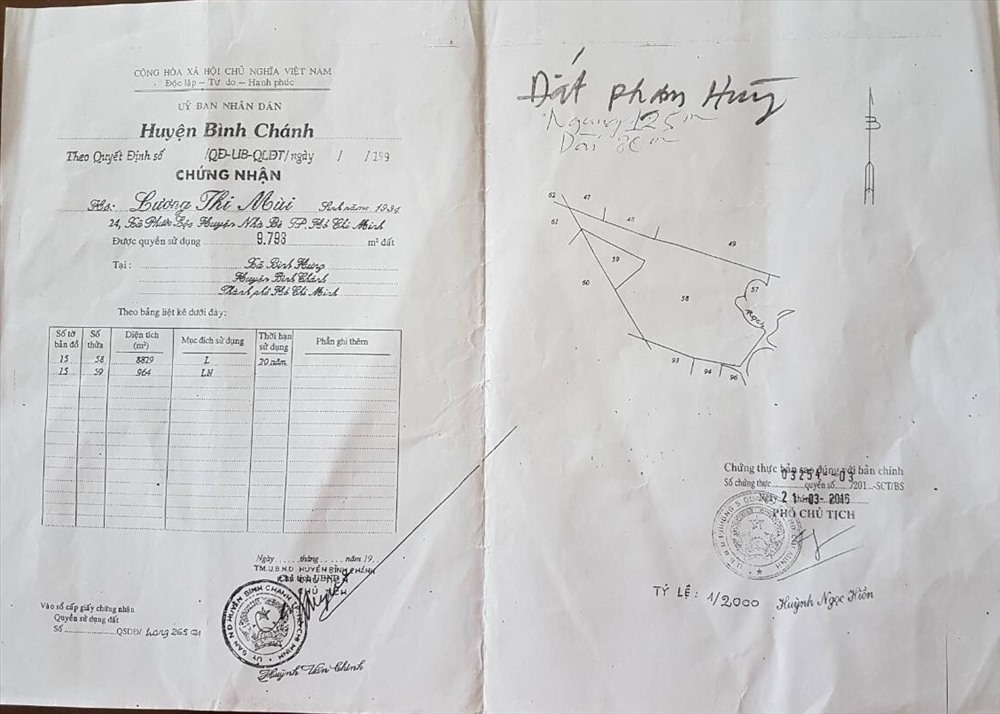 CỘNG HÒA XÃ HỘI CHỦ NGHĨA VIỆT NAM
Độc lập - Tự do - Hạnh phúc
UỶ BAN NHÂN DÂN
Huyện Bình Chánh
Theo Quyết Định số /QĐ-UB-QLĐT/ngày / /199
CHỨNG NHẬN
Hộ: Lương Thị Mùi Sinh năm 193
24, Xã Phước Lộc Huyện Nhà Bè TP. Hồ Chí Minh
Được quyền sử dụng 9.793 m² đất
Tại : Xã Bình Hưng
Huyện Bình Chánh
Thành phố Hồ Chí Minh
Theo bảng liệt kê dưới đây:
Số tờ bản đồ Số thửa Diện tích (m²) Mục đích sử dụng Thời hạn sử dụng Phần ghi thêm
15 58 8829 L 20 năm
15 59 964 LN
Ngày ...... tháng ...... năm 19
TM.U.B.N.D HUYỆN BÌNH CHÁNH
Vào sổ cấp giấy chứng nhận
Quyền sử dụng đất
Số QSDĐ/
ỦY BAN ND HUYỆN BÌNH CHÁNH
Huỳnh Văn Chính
Đất phạm Hùng
Ngang 125 m
Dài 80 m
B
62 47 48 49
61 59 60 58 57
Rạch
93 94 96
Chứng thực bản sao đúng với bản chính
03254 -03
Số chứng thực quyển số 201 -SCT/BS
Ngày 21 -03- 2016
PHÓ CHỦ TỊCH
TỶ LỆ : 1/2000
Huỳnh Ngọc Hiền